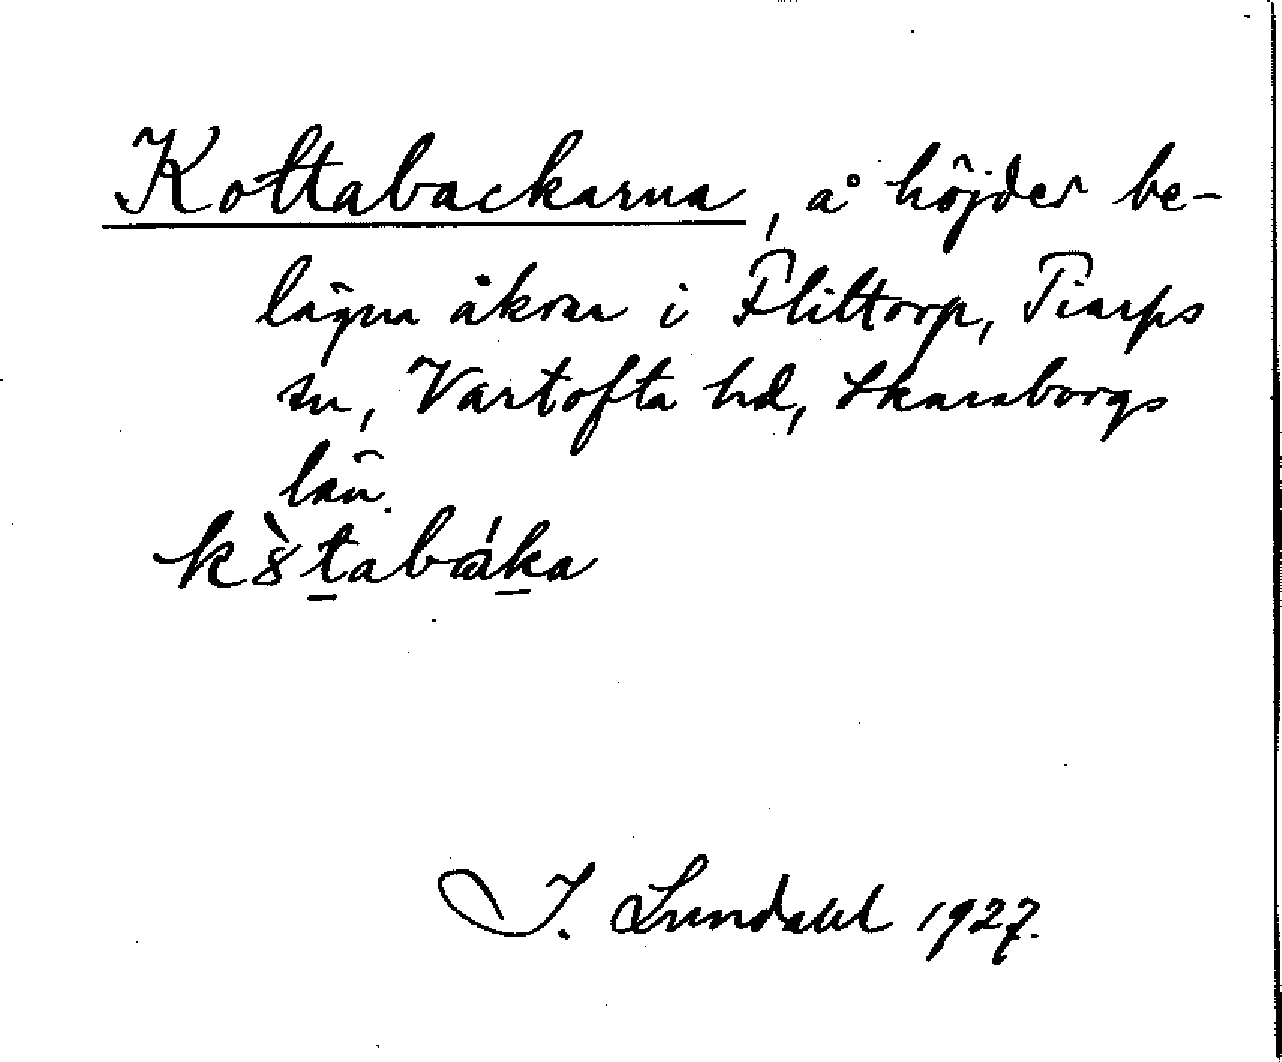 Kottabackarna, å höjder be-
lägna åkrar i Flittorp, Tiarps
sn, Vartofta hd, Skaraborgs
län.
k8̀tabáka
I. Lundahl 1927.